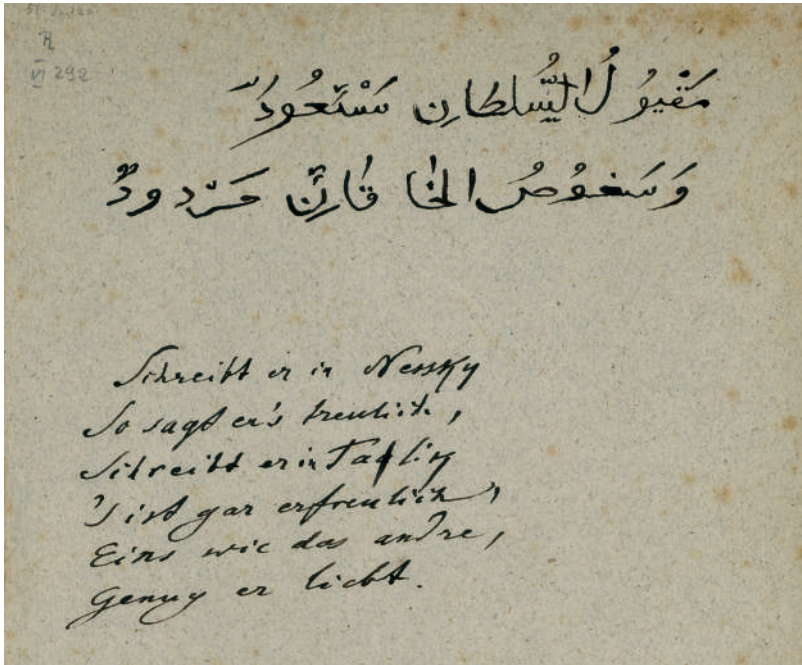 R
VI 292
مَقْبُو لُ السُّلطانِ مَسْعُودٌ
وَمَبغُوضُ الخَا قَانِ مَرْدودٌ
Schreibt er in Nessky
So sagt er's treulich,
Schreibt er in
's ist gar erfreulich,
Eins wie das andre,
Genug er liebt.